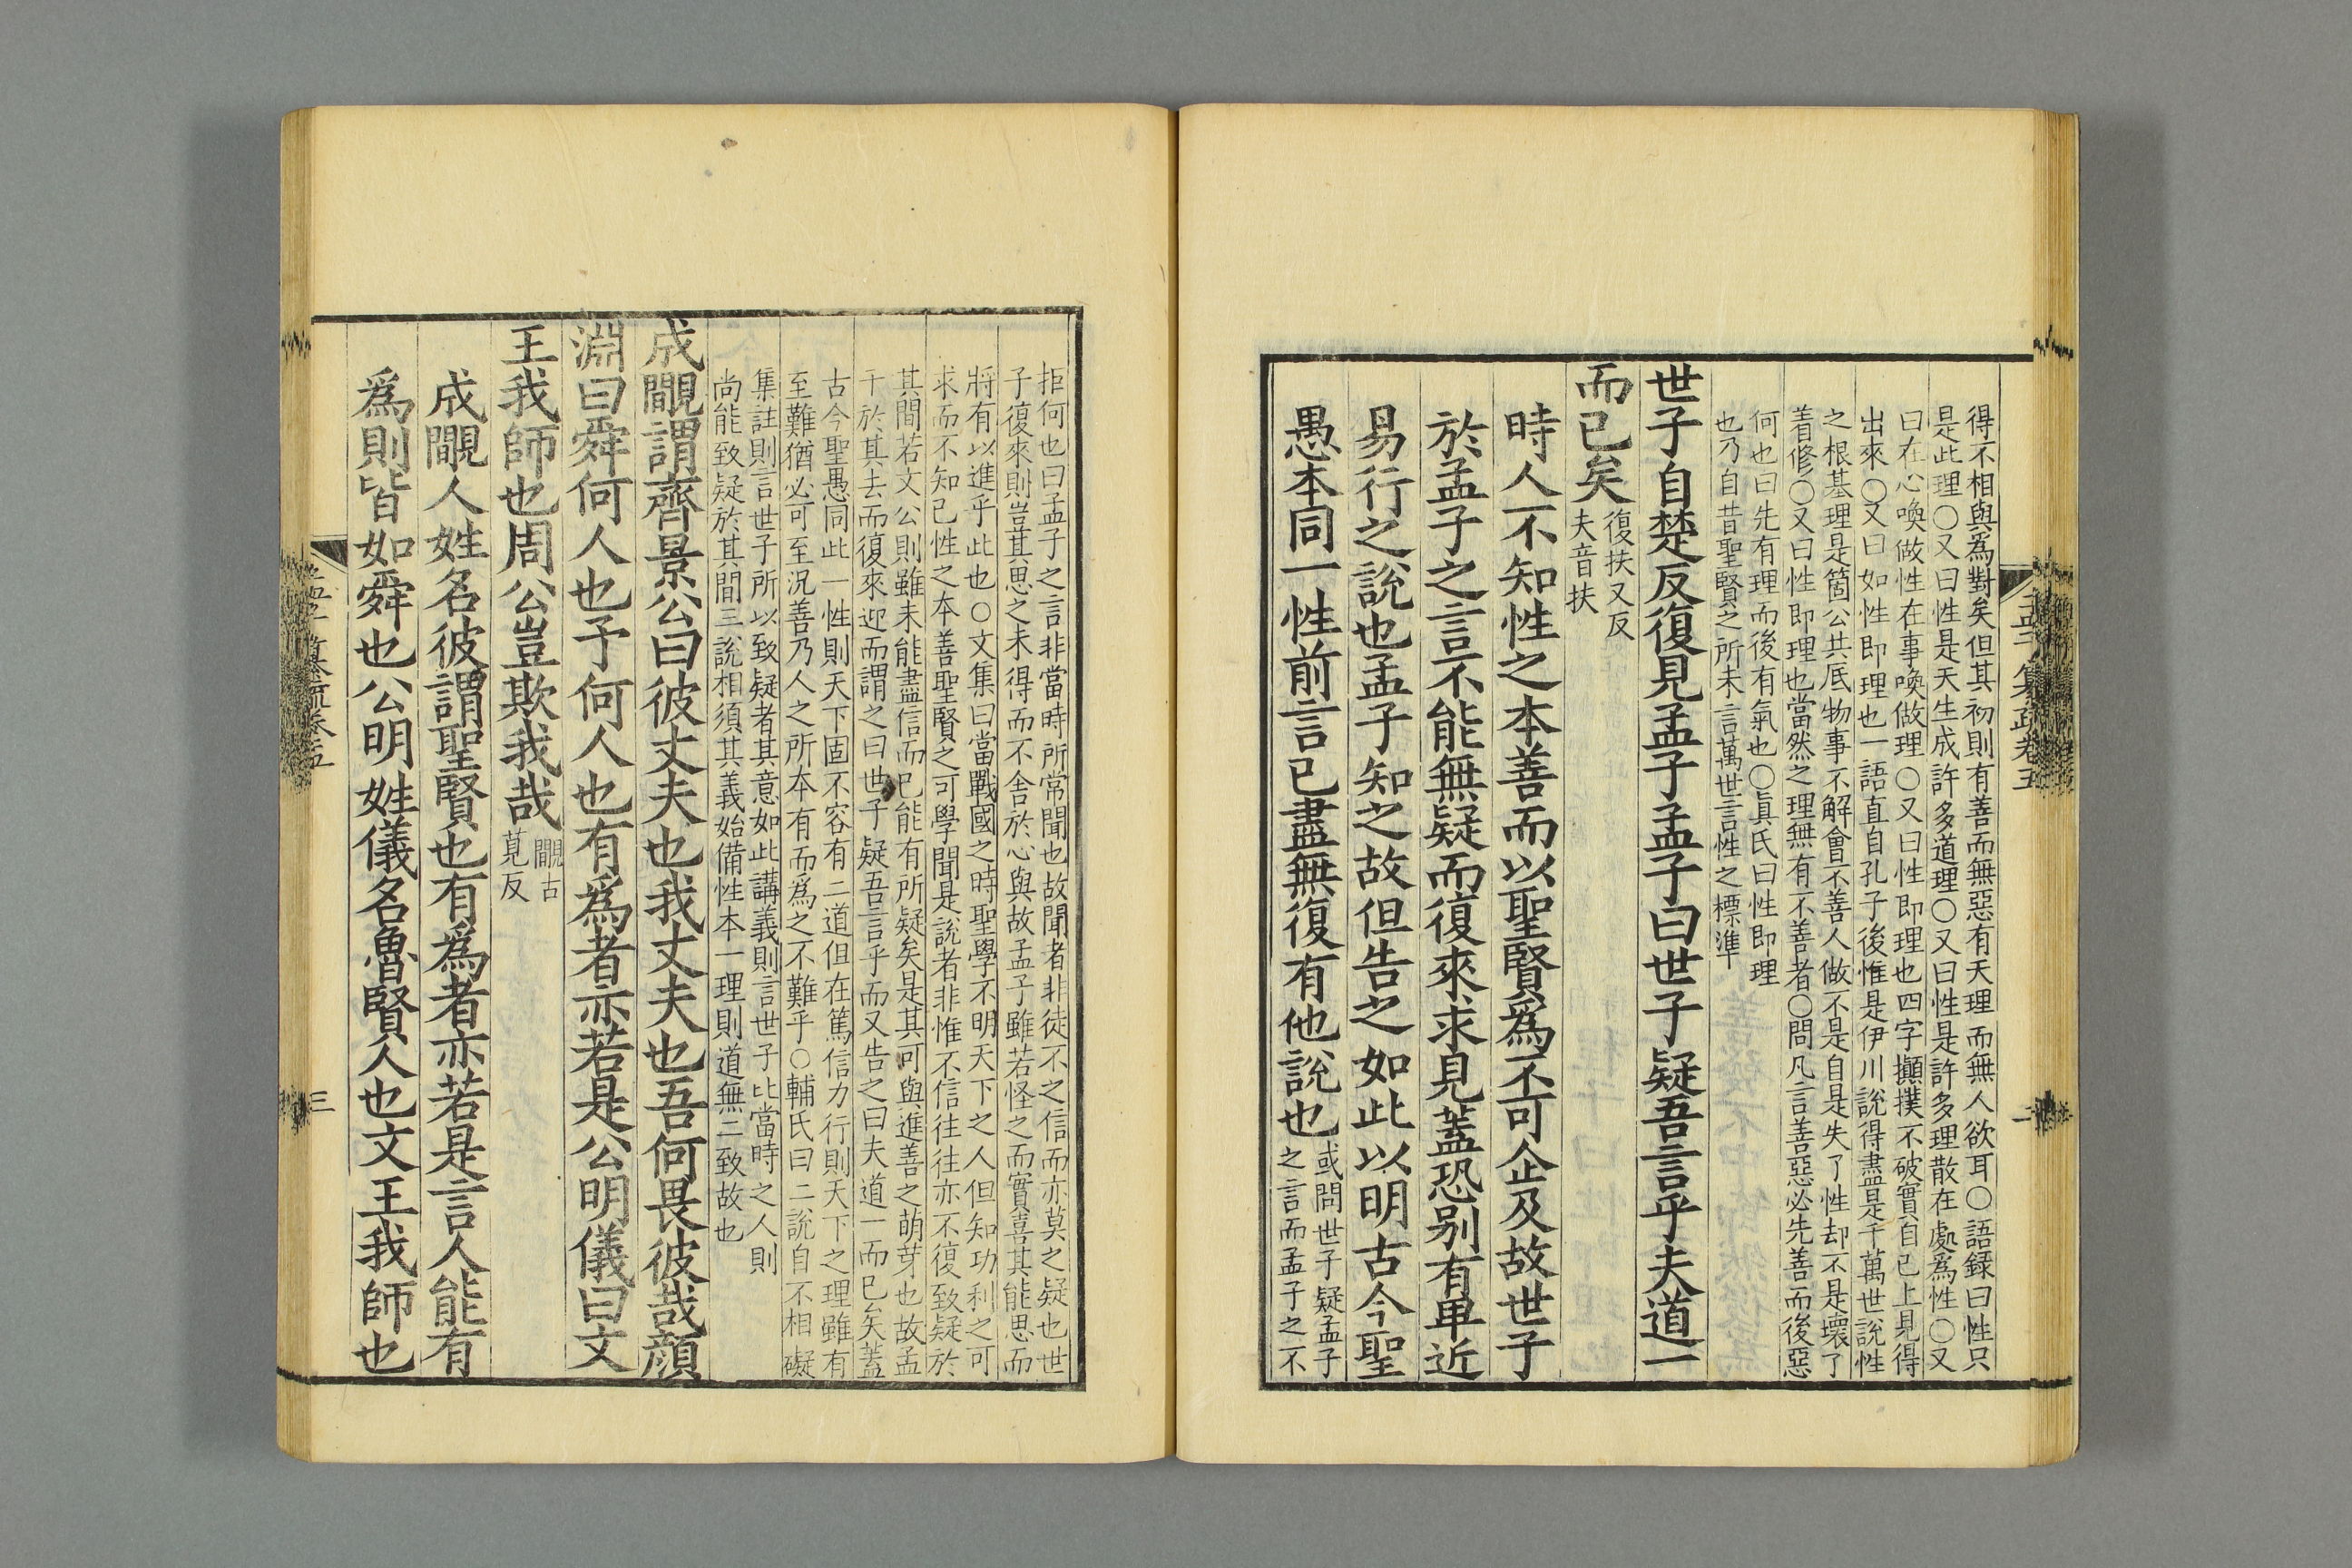 得不相與爲對矣但其初則有善而無惡有天理而無人欲耳○語録曰性只
是此理○又曰性是天生成許多道理○又曰性是許多理散在處爲性○又
曰在心喚做性在事喚做理○又曰性即理也四字攧撲不破實自己上見得
出來○又曰如性即理也一語直自孔子後惟是伊川說得盡是千萬世說性
之根基理是箇公共底物事不解會不善人做不是自是失了性却不是壞了
着修○又曰性即理也當然之理無有不善者○問凡言善惡必先善而後惡
何也曰先有理而後有氣也○眞氏曰性即理
也乃自昔聖賢之所未言萬世言性之標準
世子自楚反復見孟子孟子曰世子疑吾言乎夫道一
而已矣
復扶又反
夫音扶
時人不知性之本善而以聖賢爲不可企及故世子
於孟子之言不能無疑而復來求見蓋恐别有卑近
易行之說也孟子知之故但告之如此以明古今聖
愚本同一性前言已盡無復有他說也
或問世子疑孟子
之言而孟子之不
孟子集疏卷五
拒何也曰孟子之言非當時所常聞也故聞者非徒不之信而亦莫之疑也世
子復來則豈其思之未得而不舍於心與故孟子雖若怪之而實喜其能思而
將有以進乎此也○文集曰當戰國之時聖學不明天下之人但知功利之可
求而不知己性之本善聖賢之可學聞是說者非惟不信往往亦不復致疑於
其間若文公則雖未能盡信而已能有所疑矣是其可與進善之萌芽也故孟
子於其去而復來迎而謂之曰世子疑吾言乎而又告之曰夫道一而已矣蓋
古今聖愚同此一性則天下固不容有二道但在篤信力行則天下之理雖有
至難猶必可至況善乃人之所本有而爲之不難乎○輔氏曰二說自不相礙
集註則言世子所以致疑者其意如此講義則言世子比當時之人則
尚能致疑於其間三說相須其義始備性本一理則道無二致故也
成覵謂齊景公曰彼丈夫也我丈夫也吾何畏彼哉顔
淵曰舜何人也予何人也有爲者亦若是公明儀曰文
王我師也周公豈欺我哉
覵古
莧反
成覵人姓名彼謂聖賢也有爲者亦若是言人能有
爲則皆如舜也公明姓儀名魯賢人也文王我師也
孟子集疏卷五
三